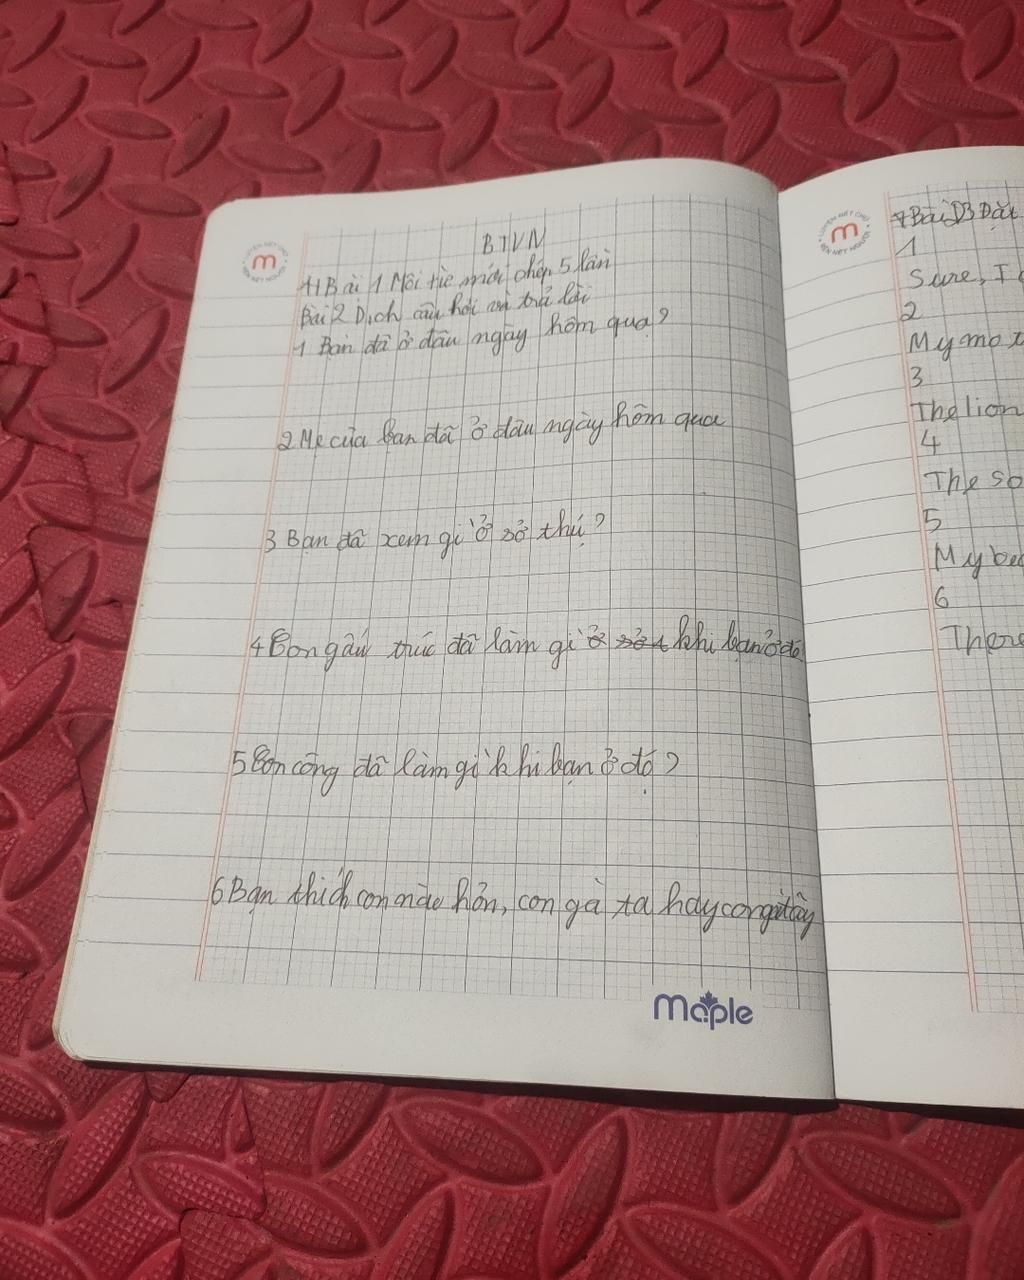 BTVN
+) Bài 1 Mỗi từ mới chép 5 lần
Bài 2 Dịch câu hỏi và trả lời
1 Bạn đã ở đâu ngày hôm qua?
2 Mẹ của bạn đã ở đâu ngày hôm qua
3 Bạn đã xem gì ở sở thú?
4 Con gấu trúc đã làm gì khi bạn ở đó
5 Con công đã làm gì khi bạn ở đó?
6 Bạn thích con nào hơn, con gà ta hay con gà tây
m
maple
m
+ Bài 3 Đặt
1
Sure, I
2
My
3
The lion
4
The
5
My
6
There